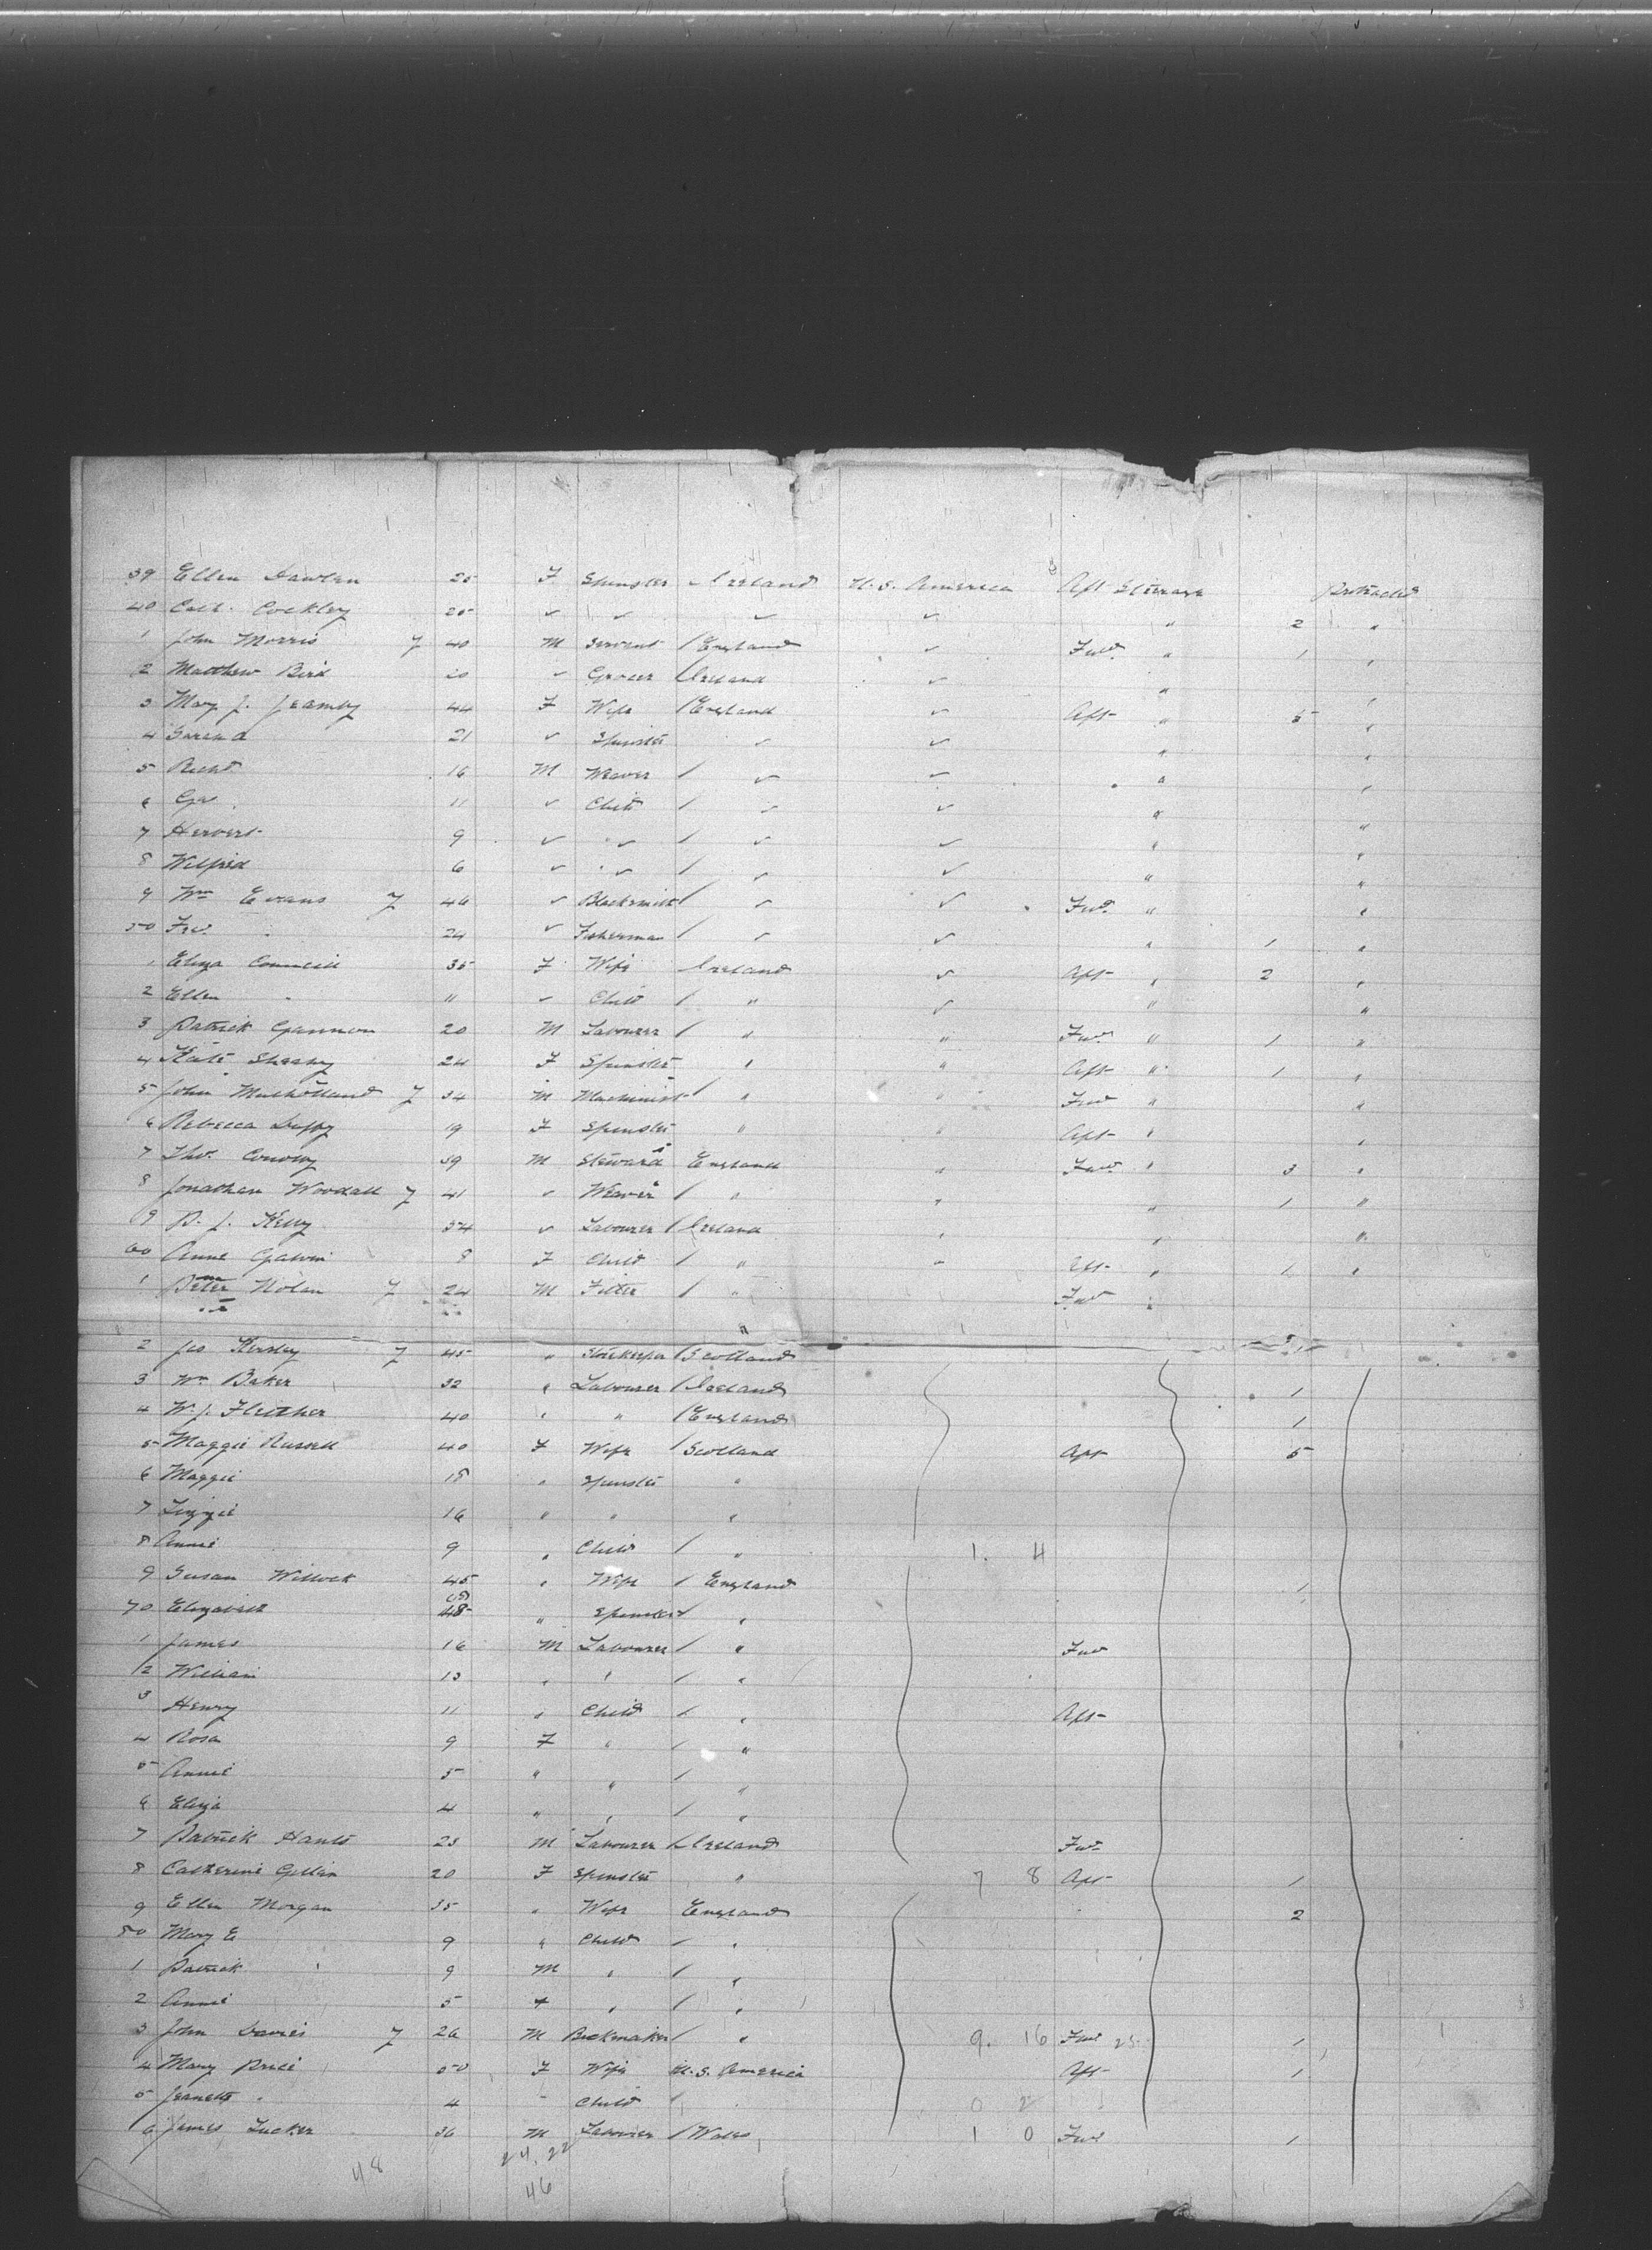 39 Ellen 25 F Spinster Ireland U.S. America Aft Steerage Protracted
40 Cath. Cockley 20 ✓ ✓ ✓ ✓ " 2 "
1 John Morris 7 40 M Servant / England ✓ Fwd. " 1 "
2 Matthew Bird 20 ✓ Grocer / Ireland ✓ " "
3 Mary J. 44 F Wife / England ✓ Aft " 5 "
4 21 ✓ Spinster ✓ ✓ " "
5 Richd 16 M Weaver / ✓ ✓ " "
6 11 ✓ Child / ✓ ✓ " "
7 Herbert 9 ✓ ✓ / ✓ ✓ " "
8 Wilfrid 6 ✓ ✓ / ✓ ✓ " "
9 Wm Evans 7 46 ✓ Blacksmith / ✓ ✓ Fwd. " "
50 24 ✓ Fisherman / ✓ ✓ " 1 "
1 Eliza 35 F Wife Ireland ✓ Aft " 2 "
2 Ellen " 11 ✓ Child / " ✓ " "
3 Patrick Gannon 20 M Labourer / " " Fwd. " 1 "
4 Kate Sheehy 24 F Spinster " " Aft " 1 "
5 John Mulholland 7 34 M Machinist / " " Fwd " "
6 Rebecca Duffy 19 F Spinster " " Aft " "
7 Tho. Conolly 39 M Steward England " Fwd. " 3 "
8 Jonathan Woodall 7 41 " Weaver / " " " 1 "
9 P. J. Kelly 34 ✓ Labourer / Ireland " " "
60 Anne Galvin 8 F Child / " " Aft " 1 "
1 Peter Nolan 7 24 M Fitter / " Fwd "
2 Jas Kersley 7 45 " Storekeeper / Scotland
3 Wm Baker 32 " Labourer / Ireland 1
4 W. J. Fletcher 40 " " / England 1
5 Maggie Russell 40 F Wife / Scotland Aft 5
6 Maggie 18 " Spinster "
7 Lizzie 16 " " "
8 Annie 9 " Child / " 1. 4
9 Susan Willock 45 " Wife / England 1
70 Elizabeth 18 " Spinster / "
1 James 16 M Labourer / " Fwd
2 William 13 " " / "
3 Henry 11 " Child / " Aft
4 Rosa 9 F " / "
5 Annie 5 " " / "
6 Eliza 4 " " / "
7 Patrick 23 M Labourer / Ireland Fwd
8 Catherine Gillin 20 F Spinster " 7 8 Aft 1
9 Ellen Morgan 35 " Wife England 2
80 Mary E 9 " Child / "
1 Patrick 9 M " / "
2 Annie 5 F " / "
3 John Davies 7 26 M / " 9. 16 Fwd 25 1
4 Mary Price 50 F Wife U.S. America Aft 1
5 Jeanette " 4 " Child / 0 2
6 James Tucker 36 M Labourer / Wales 1 0 Fwd 1
48 24. 22
46